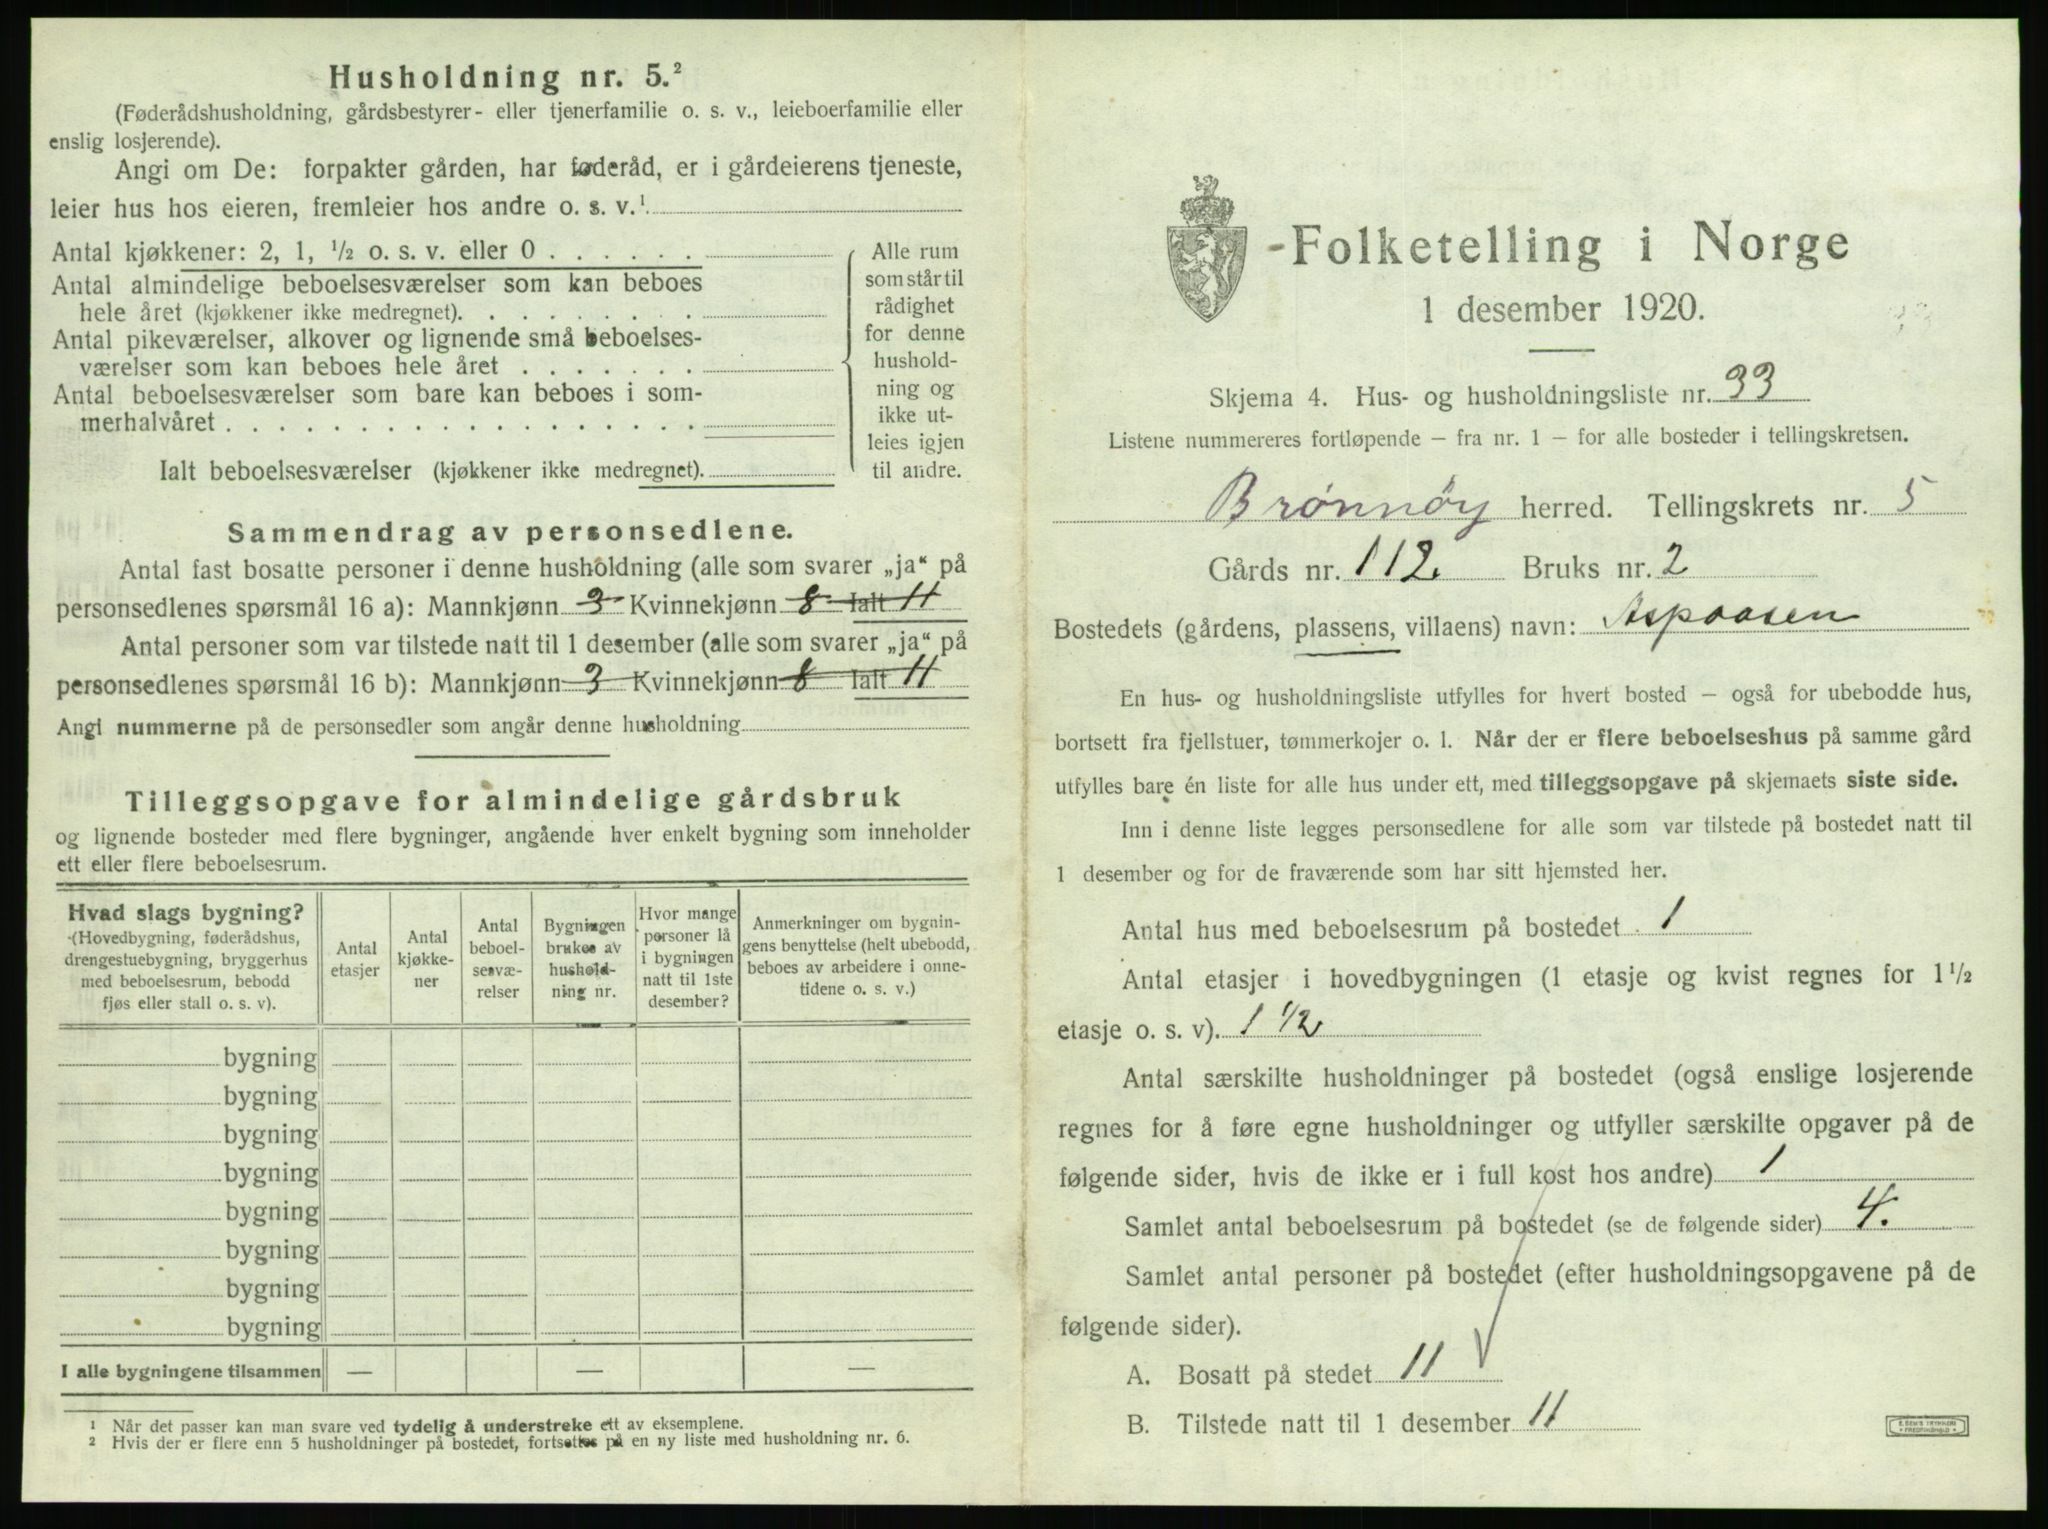 Husholdning nr. 5.²
(Føderådshusholdning, gårdsbestyrer- eller tjenerfamilie o. s. v., leieboerfamilie eller
enslig losjerende).
Angi om De: forpakter gården, har føderåd, er i gårdeierens tjeneste,
leier hus hos eieren, fremleier hos andre o. s. v.¹
Antal kjøkkener: 2, 1, ½ o. s. v. eller 0 . . . . . .
Antal almindelige beboelsesværelser som kan beboes
hele året (kjøkkener ikke medregnet). . . . . . . . .
Antal pikeværelser, alkover og lignende små beboelses-
værelser som kan beboes hele året . . . . . . .
Antal beboelsesværelser som bare kan beboes i som-
merhalvåret . . . . . . . . . . . . . . . . . .
Ialt beboelsesværelser (kjøkkener ikke medregnet).
Alle rum
som står til
rådighet
for denne
hushold-
ning og
ikke ut-
leies igjen
til andre.
Sammendrag av personsedlene.
Antal fast bosatte personer i denne husholdning (alle som svarer „ja“ på
personsedlenes spørsmål 16 a): Mannkjønn 3 Kvinnekjønn 8 Ialt 11
Antal personer som var tilstede natt til 1 desember (alle som svarer „ja“ på
personsedlenes spørsmål 16 b): Mannkjønn 3 Kvinnekjønn 8 Ialt 11
Angi nummerne på de personsedler som angår denne husholdning
Tilleggsopgave for almindelige gårdsbruk
og lignende bosteder med flere bygninger, angående hver enkelt bygning som inneholder
ett eller flere beboelsesrum.
Hvad slags bygning?
(Hovedbygning, føderådshus,
drengestuebygning, bryggerhus
med beboelsesrum, bebodd
fjøs eller stall o. s. v).
Antal
etasjer
Antal
kjøkke-
ner
Antal
beboel-
sesvæ-
relser
Bygningen
brukes av
hushold-
ning nr.
Hvor mange
personer lå
i bygningen
natt til 1ste
desember?
Anmerkninger om bygnin-
gens benyttelse (helt ubebodd,
beboes av arbeidere i onne-
tidene o. s. v.)
bygning
bygning
bygning
bygning
bygning
bygning
bygning
bygning
I alle bygningene tilsammen — — —
¹ Når det passer kan man svare ved tydelig å understreke ett av eksemplene.
² Hvis der er flere enn 5 husholdninger på bostedet, fortsettes på en ny liste med husholdning nr. 6.
Folketelling i Norge
1 desember 1920.
Skjema 4. Hus- og husholdningsliste nr. 33
Listene nummereres fortløpende – fra nr. 1 – for alle bosteder i tellingskretsen.
Brønnøy herred. Tellingskrets nr. 5
Gårds nr. 112. Bruks nr. 2
Bostedets (gårdens, plassens, villaens) navn: Aspaasen
En hus- og husholdningsliste utfylles for hvert bosted – også for ubebodde hus,
bortsett fra fjellstuer, tømmerkojer o. l. Når der er flere beboelseshus på samme gård
utfylles bare én liste for alle hus under ett, med tilleggsopgave på skjemaets siste side.
Inn i denne liste legges personsedlene for alle som var tilstede på bostedet natt til
1 desember og for de fraværende som har sitt hjemsted her.
Antal hus med beboelsesrum på bostedet 1
Antal etasjer i hovedbygningen (1 etasje og kvist regnes for 1½
etasje o. s. v). 1 ½
Antal særskilte husholdninger på bostedet (også enslige losjerende
regnes for å føre egne husholdninger og utfyller særskilte opgaver på de
følgende sider, hvis de ikke er i full kost hos andre) 1
Samlet antal beboelsesrum på bostedet (se de følgende sider) 4.
Samlet antal personer på bostedet (efter husholdningsopgavene på de
følgende sider).
A. Bosatt på stedet 11
B. Tilstede natt til 1 desember 11